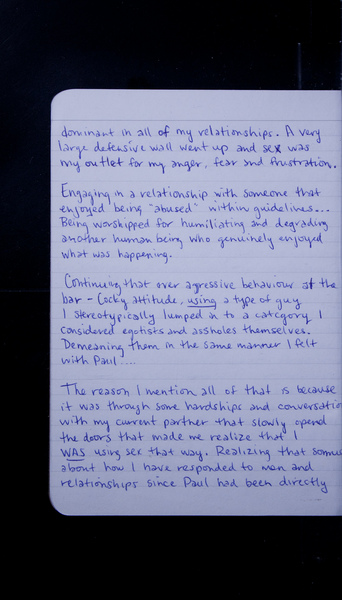 dominant in all of my relationships. A very
large defensive wall went up and sex was
my outlet for my anger, fear and frustration.
Engaging in a relationship with someone that
enjoyed being "abused" within guidelines...
Being worshipped for humiliating and degrading
another human being who genuinely enjoyed
what was happening.
Continuing that over agressive behaviour at the
bar - Cocky attitude, using a type of guy
I stereotypically lumped in to a category I
considered egotists and assholes themselves.
Demeaning them in the same manner I felt
with Paul....
The reason I mention all of that is because
it was through some hardships and conversatio
with my current partner that slowly opend
the doors that made me realize that I
WAS using sex that way. Realizing that some
about how I have responded to men and
relationships since Paul had been directly